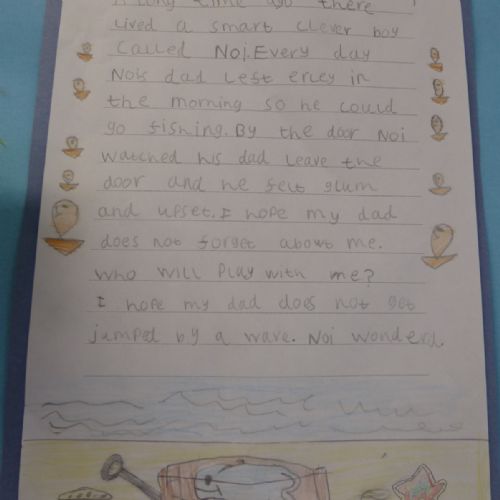 A long time ago there
Lived a smart clever boy
Called Noi. Every day
Nois dad Left erley in
the morning so he could
go fishing. By the door Noi
watched his dad Leave the
door and he felt glum
and upset. I hope my dad
does not forget about me.
Who will Play with me?
I hope my dad does not get
jumped by a wave. Noi wonderd.